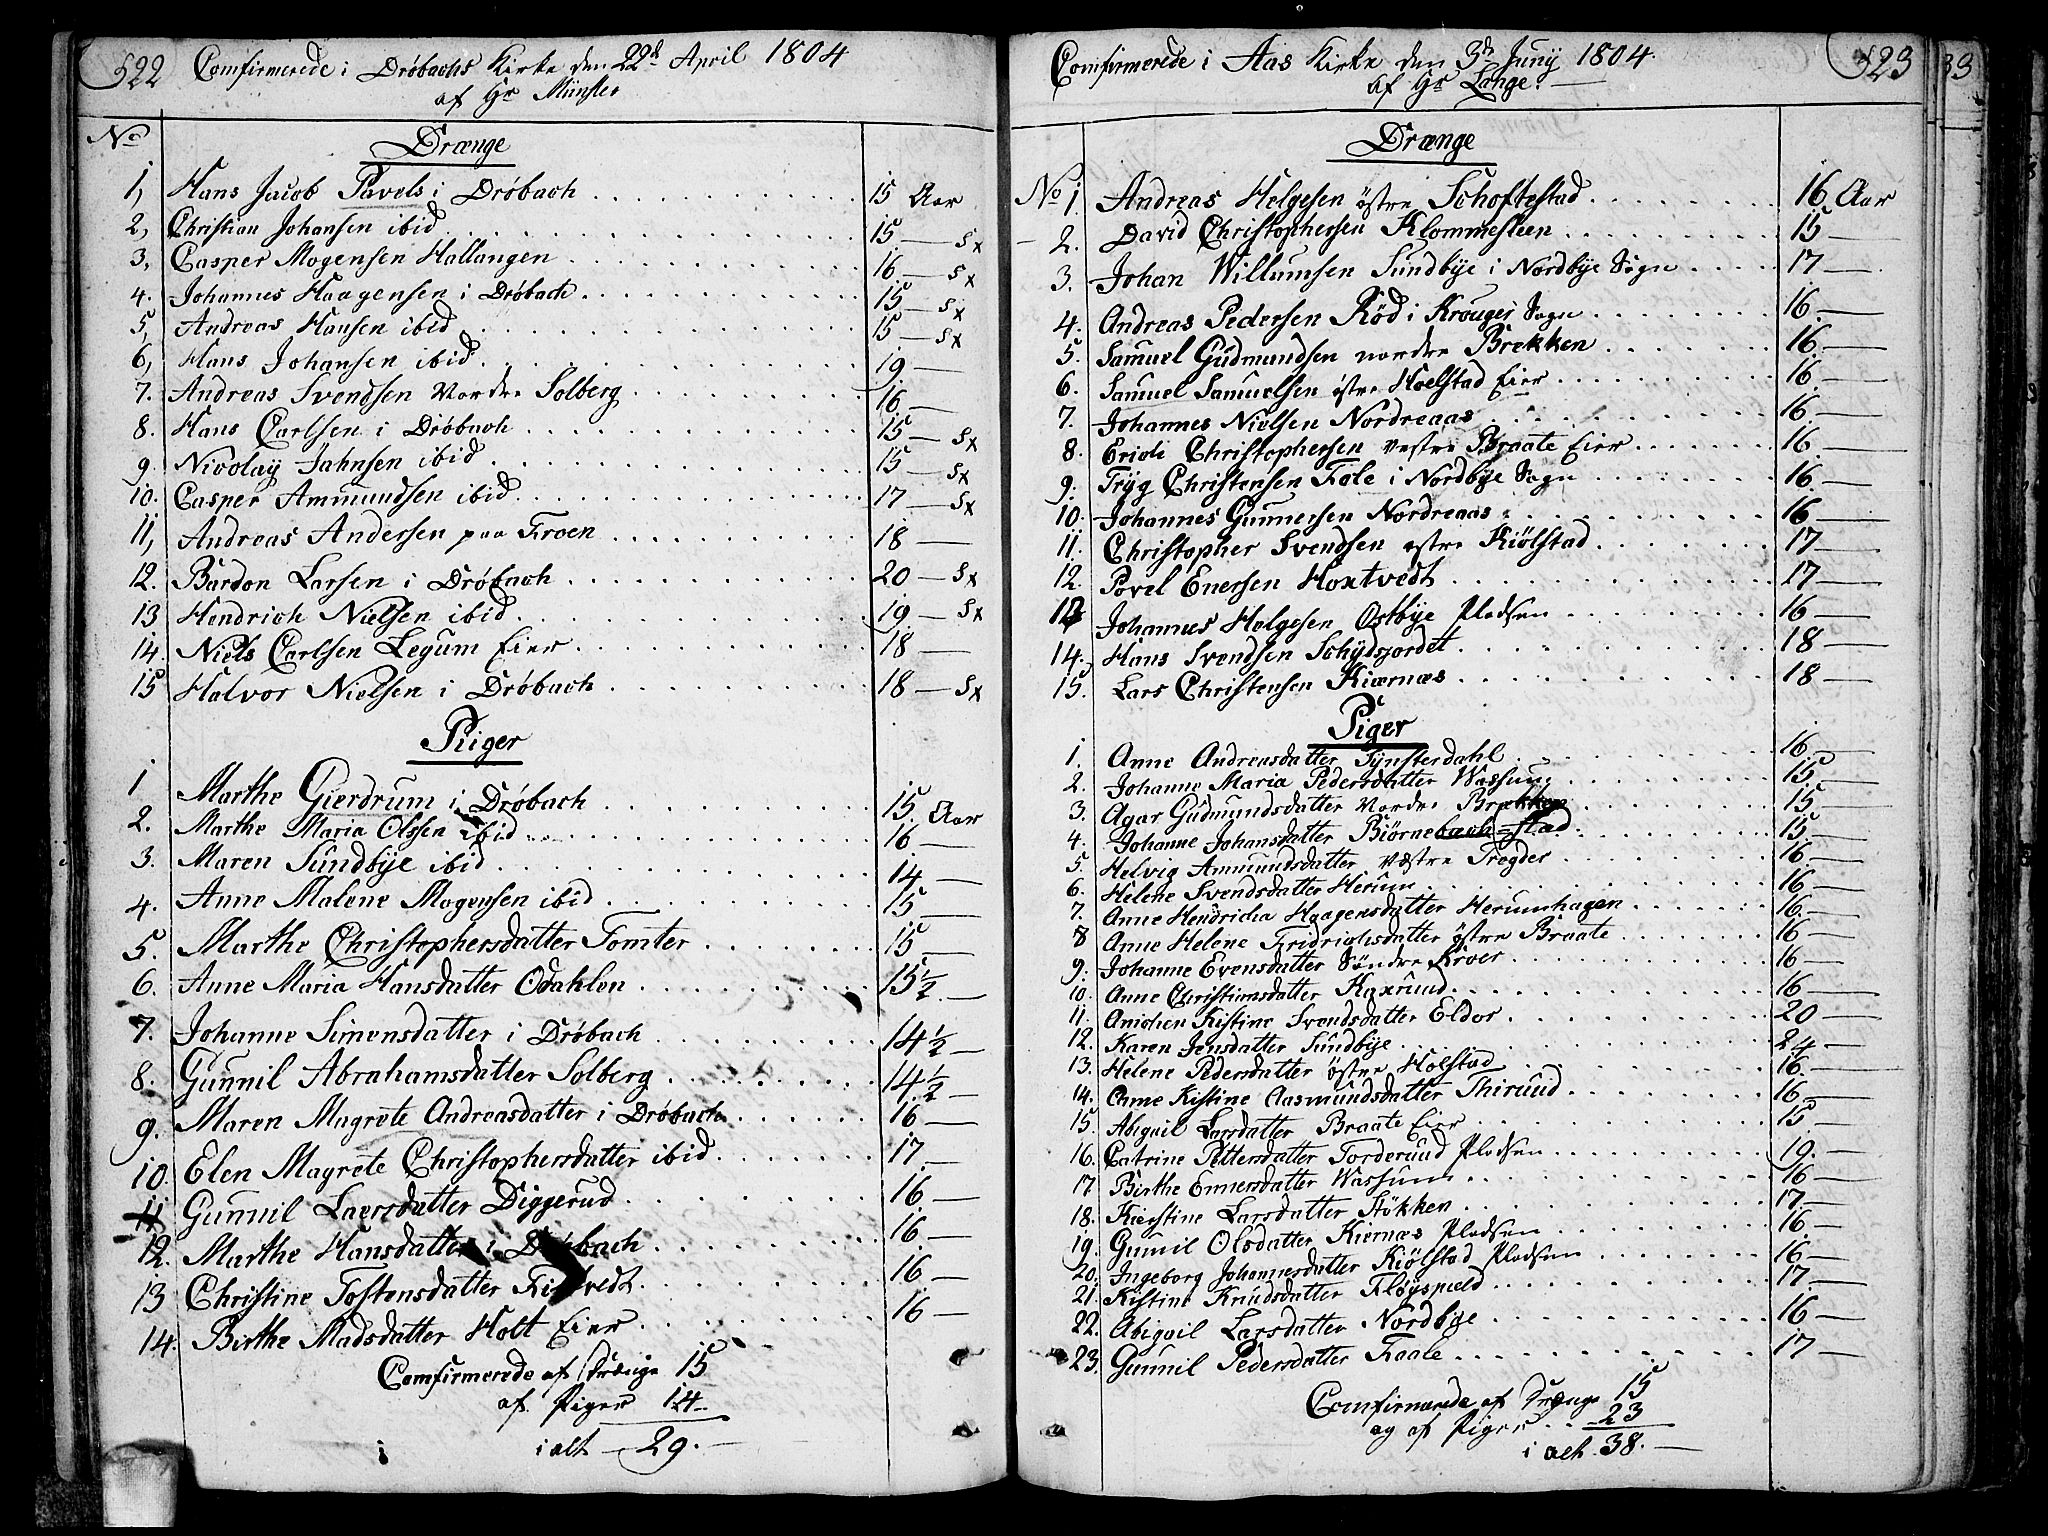 522 Comfirmerede i Drøbachs Kirke den 22d April 1804
af Hr Münster
No
Drænge
1, Hans Jacob Pavels i Drøbach 15 Aar
2, Christian Johansen ibid 15 — Sx
3, Casper Mogensen Hallangen 16 — Sx
4. Johannes Haagensen i Drøbach 15 — Sx
5, Andreas Hansen ibid 15 — Sx
6, Hans Johansen ibid 19 —
7. Andreas Svendsen Nordre Solberg 16 —
8. Hans Carlsen i Drøbach 15 — Sx
9. Nicolay Jahnsen ibid 15 — Sx
10. Casper Ammundsen ibid 17 — Sx
11, Andreas Andersen paa Froen 18 —
12. Bardon Larsen i Drøbach 20 — Sx
13 Hendrich Nielsen ibid 19 — Sx
14. Niels Carlsen Legum Eier 18 —
15 Halvor Nielsen i Drøbach 18 — Sx
Piiger
1 Marthe Gierdrum i Drøbach 15 Aar
2. Marthe Maria Olssen ibid 16 —
3. Maren Sundbÿe ibid 14 —
4. Anne Malene Mogensen ibid 15 —
5. Marthe Christophersdatter Tomter 15 —
6. Anne Maria Hansdatter Odahlen 15½ —
7. Johanne Simensdatter i Drøbach 14½ —
8. Gunnil Abrahamsdatter Solberg 14½ —
9. Maren Magrete Andreasdatter i Drøbach 16 —
10. Elen Magrete Christophersdatter ibid 17 —
11 Gunnil Laersdatter Diggerud 16 —
12. Marthe Hansdatter i Drøbach 16 —
13 Christine Tostensdatter 16 —
14. Birthe Madsdatter Holt Eier 16 —
Comfirmerede af Drænge 15
af Piger 14
i alt — 29. —
Comfirmerede i Aas Kirke den 3de Juny 1804. 523
af Hr Lange. —
Drænge
No 1. Andreas Helgesen östre Schoftestad 16 Aar
2. David Christophersen Klommesteen 15 —
3. Johan Willumsen Sundbÿe i Nordbÿe Sogn 17 —
4. Andreas Pedersen Röd i Krouger Sogn 16 —
5. Samuel Gudmundsen nordre Brekken 16 —
6. Samuel Samuelsen östre Hoelstad Eier 16 —
7. Johannes Nielsen Nordreaas 16 —
8. Erich Christophersen vestre Braate Eier 16 —
9. Tryg Christensen Fole i Nordbÿe Sogn 16 —
10. Johannes Gunnersen Nordreaas 16 —
11. Christopher Svendsen østre Kiølstad 17 —
12 Povel Enersen Hoxtvedt 17 —
13 Johannes Helgesen Ostbÿe Pladsen 16 —
14. Hans Svendsen Schydsjordet 18 —
15. Lars Christensen Kiærnæs 18 —
Piger
1. Anne Andreasdatter Tÿnsterdahl 16 —
2. Johanne Maria Pedersdatter Wassum 15 —
3. Agar Gudmundsdatter Nordre Brekken 15 —
4. Johanne Johansdatter Biørnebech=stad 15 —
5. Helvig Ammundsdatter Vestre Tregder 16 —
6. Helene Svendsdatter Herum 16 —
7. Anne Hendricha Haagensdatter Herumhagen 16 —
8 Anne Helene Fridrichsdatter östre Braate 16 —
9. Johanne Evensdatter Søndre Kroer 16 —
10. Anne Christiansdatter Kaxrud 16 —
11. Anichen Kistine Svendsdatter Eldor 20 —
12. Karen Jensdatter Sundbÿe 24 —
13. Helene Pedersdatter östre Holstad 16. —
14. Anne Kistine Aasmundsdatter Thirud 16 —
15. Abigail Larsdatter Braate Eier 15 —
16. Catrine Pettersdatter Forderud Pladsen 19. —
17 Birthe Ennersdatter Wassum 16 —
18. Kierstine Larsdatter Støkken 17 —
19. Gunnil Olsdatter Kiernæs Pladsen 16 —
20. Ingeborg Johannesdatter Kiølstad Pladsen 16 —
21. Kistine Knudsdatter Fløyspield 17 —
22. Abigail Larsdatter Nordbÿe 16 —
23. Gunnil Pedersdatter Faale 17 —
Comfirmerede af Drænge 15
og af Piger 23
i alt 38. —